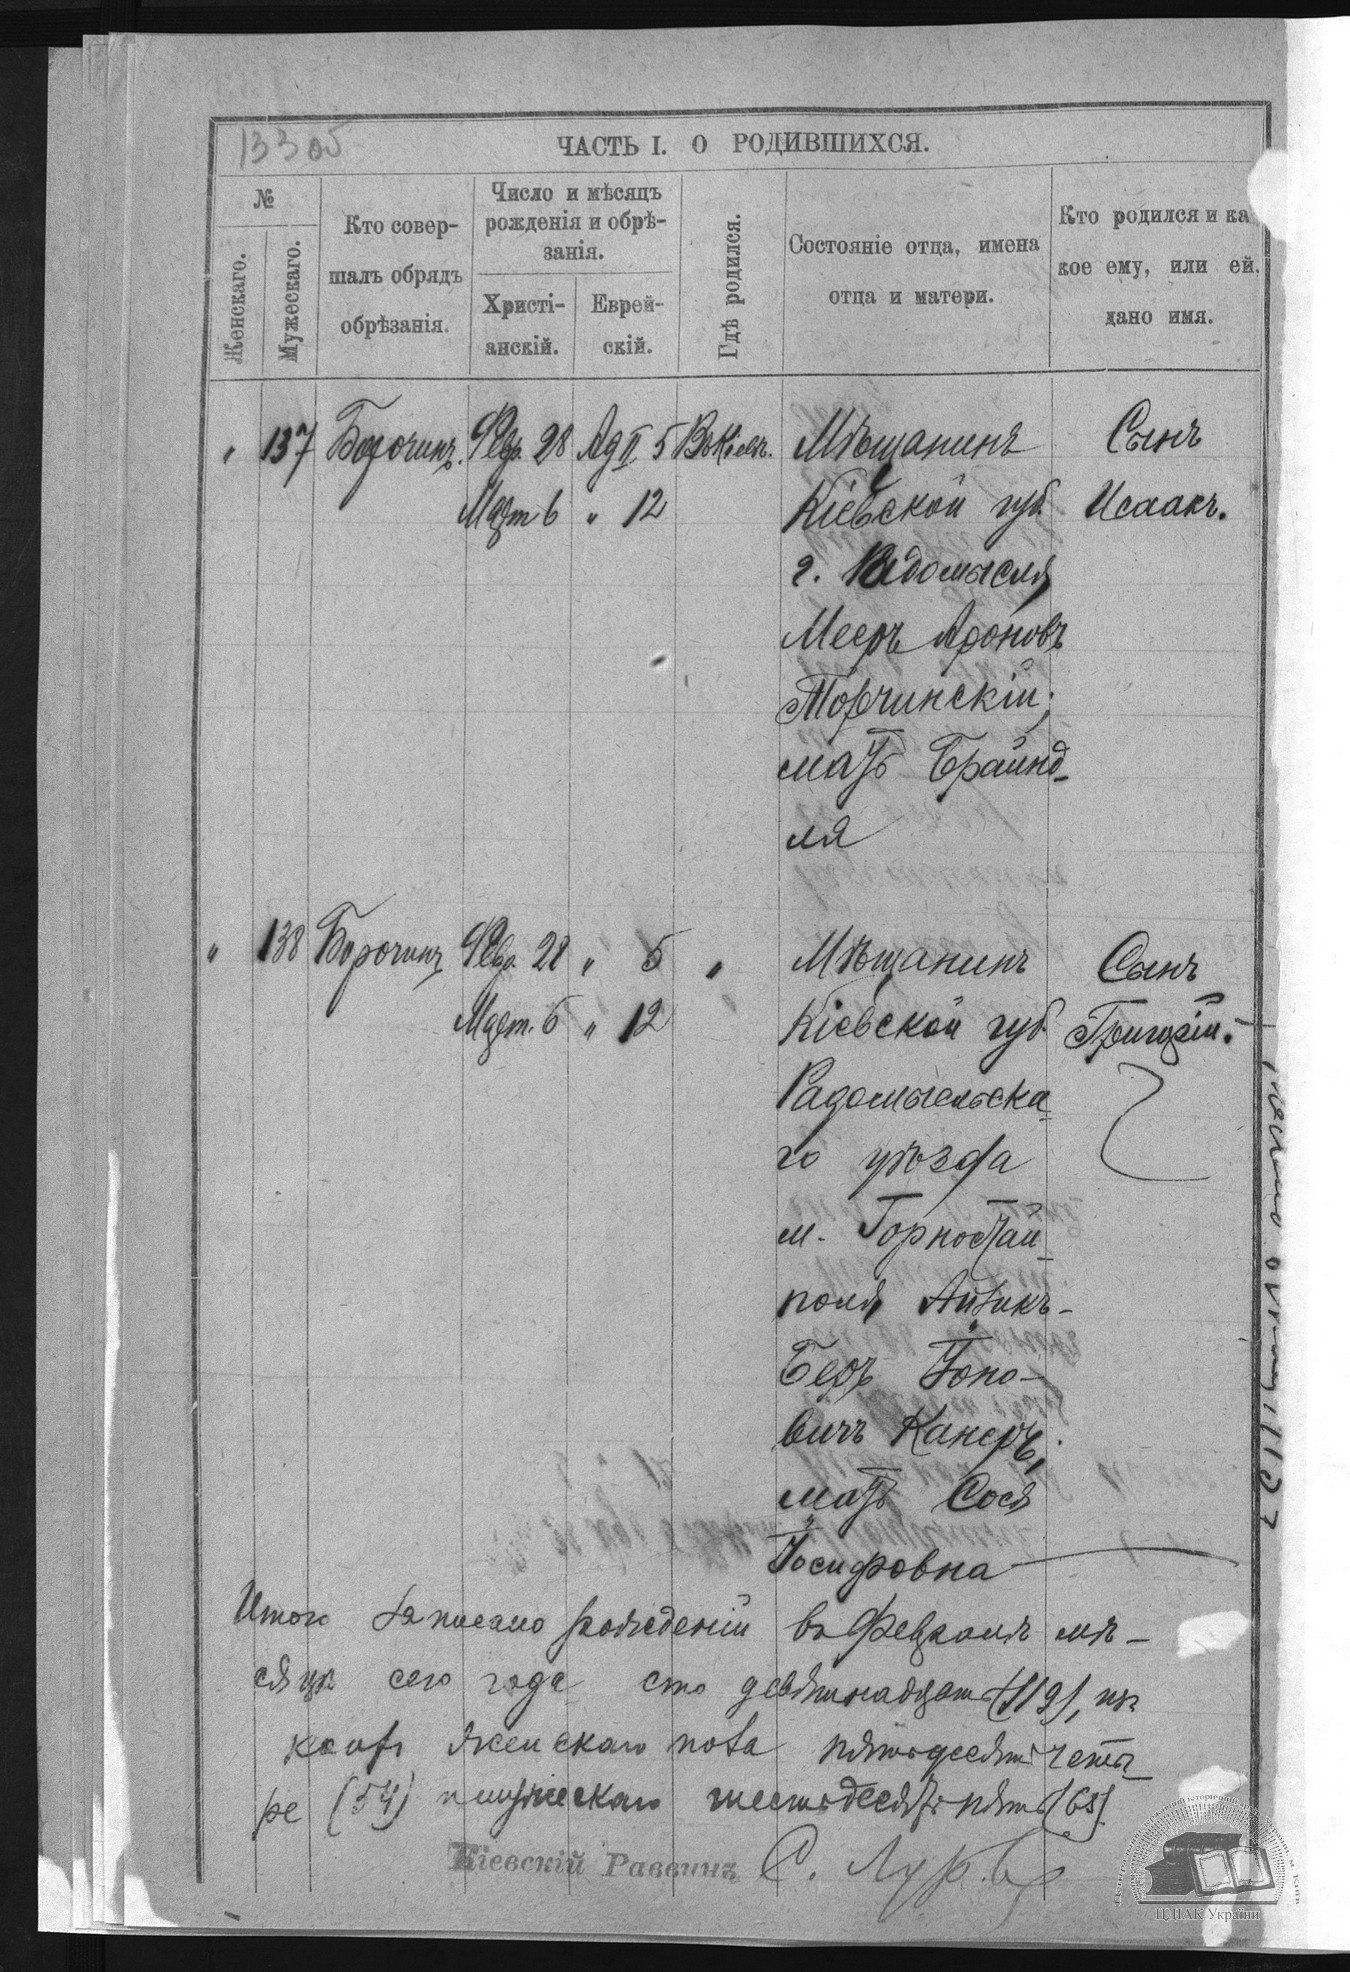 133 об
ЧАСТЬ I. О РОДИВШИХСЯ.
№
Женскаго.
Мужескаго.
Кто совер-
шалъ обрядъ
обрѣзанія.
Число и мѣсяцъ
рожденія и обрѣ-
занія.
Христі-
анскій.
Еврей-
скій.
Гдѣ родился.
Состояніе отца, имена
отца и матери.
Кто родился и ка
кое ему, или ей,
дано имя.
" 137 Борочинъ. Февр. 28 Ад II 5 Въ Кіевѣ. Мѣщанинъ Сынъ
Март 6 " 12 Кіевской губ. Исаакъ.
г. Радомысля
Мееръ Ароновъ
Торчинскій;
мать Брайнд-
ля
" 138 Борочинъ Февр. 28 " 5 " Мѣщанинъ Сынъ
Март. 6 " 12 Кіевской губ. Григорій.
Радомысльска-
го уѣзда
м. Горностай-
поля Айзикъ-
Беръ Іоно-
вичъ Канеръ,
мать Сося
Іосифовна
Итого записано рожденій въ Февралѣ мѣ-
сяцѣ сего года сто девятнадцать (119), из
коихъ женскаго пола пятьдесятъ четы-
ре (54) и мужескаго шестьдесятъ пять (65)
Кіевскій Раввинъ С. Лурье
ЦДІАК України